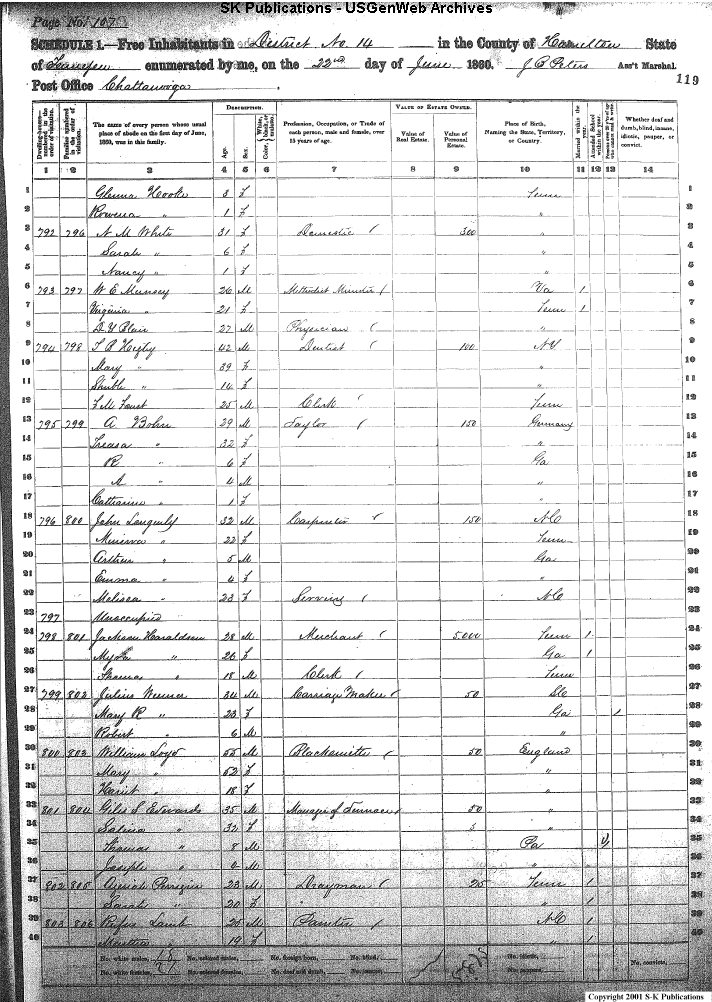 SK Publications - USGenWeb Archives
Page No. 107
SCHEDULE 1.—Free Inhabitants in District No 14 in the County of Hamilton State
of Tennessee enumerated by me, on the 22nd day of June 1860. J C Peters Ass't Marshal.
119
Post Office Chattanooga
Dwelling-houses—numbered in the order of visitation.
Families numbered in the order of visitation.
The name of every person whose usual place of abode on the first day of June, 1860, was in this family.
DESCRIPTION.
Age.
Sex.
Color, White, black, or mulatto.
Profession, Occupation, or Trade of each person, male and female, over 15 years of age.
VALUE OF ESTATE OWNED.
Value of Real Estate.
Value of Personal Estate.
Place of Birth, Naming the State, Territory, or Country.
Married within the year.
Attended School within the year.
Whether deaf and dumb, blind, insane, idiotic, pauper, or convict.
1 2 3 4 5 6 7 8 9 10 11 12 13 14
1 Glenna Hooke 3 f Tenn 1
2 Rowena " 1 f " 2
3 792 796 N M White 31 f Domestic 300 " 3
4 Sarah " 6 f " 4
5 Nancy " 1 f " 5
6 793 797 W E Munsey 26 M Methodist Minister Va 1 6
7 Virginia " 21 f Tenn 1 7
8 Blair 27 M Physician " 8
9 794 798 42 M Dentist 100 NY 9
10 Mary " 39 f " 10
11 " 14 f " 11
12 F M Faust 25 M Clerk Tenn 12
13 795 799 A Bohn 29 M Taylor 150 Germany 13
14 Treasa " 32 f " 14
15 R " 6 f Ga 15
16 A " 4 M " 16
17 Catharine " 1 f " 17
18 796 800 John 32 M Carpenter 150 NC 18
19 Minerva " 22 f Tenn 19
20 Arthur " 5 M Ga 20
21 Emma " 4 f " 21
22 Melissa " 23 f Serving NC 22
23 797 Unoccupied 23
24 798 801 Jackson Haraldson 28 M Merchant 5,000 Tenn 1 24
25 Myra " 26 f Ga 1 25
26 Thomas " 18 M Clerk Tenn 26
27 799 802 Julius 34 M Carriage Maker 50 27
28 Mary R " 23 f Ga 1 28
29 Robert " 6 M " 29
30 800 803 William Loyd 55 M Blacksmith 50 England 30
31 Mary " 52 f " 31
32 Hariet " 18 f " 32
33 801 804 Giles S Edwards 35 M Manager of Furnace 50 " 33
34 Salina " 32 f " 34
35 Thomas " 8 M Pa 35
36 Joseph " M " 36
37 802 805 23 M Drayman 25 Tenn 1 37
38 Sarah " 20 f " 1 38
39 803 806 Rufus Lamb 25 M Painter NC 1 39
40 Martha " 19 f " 1 40
No. white males, 18 No. colored males, No. foreign born, No. blind, No. idiotic, No. convicts,
No. white females, 21 No. colored females, No. deaf and dumb, No. insane, No. paupers,
Copyright 2001 S-K Publications